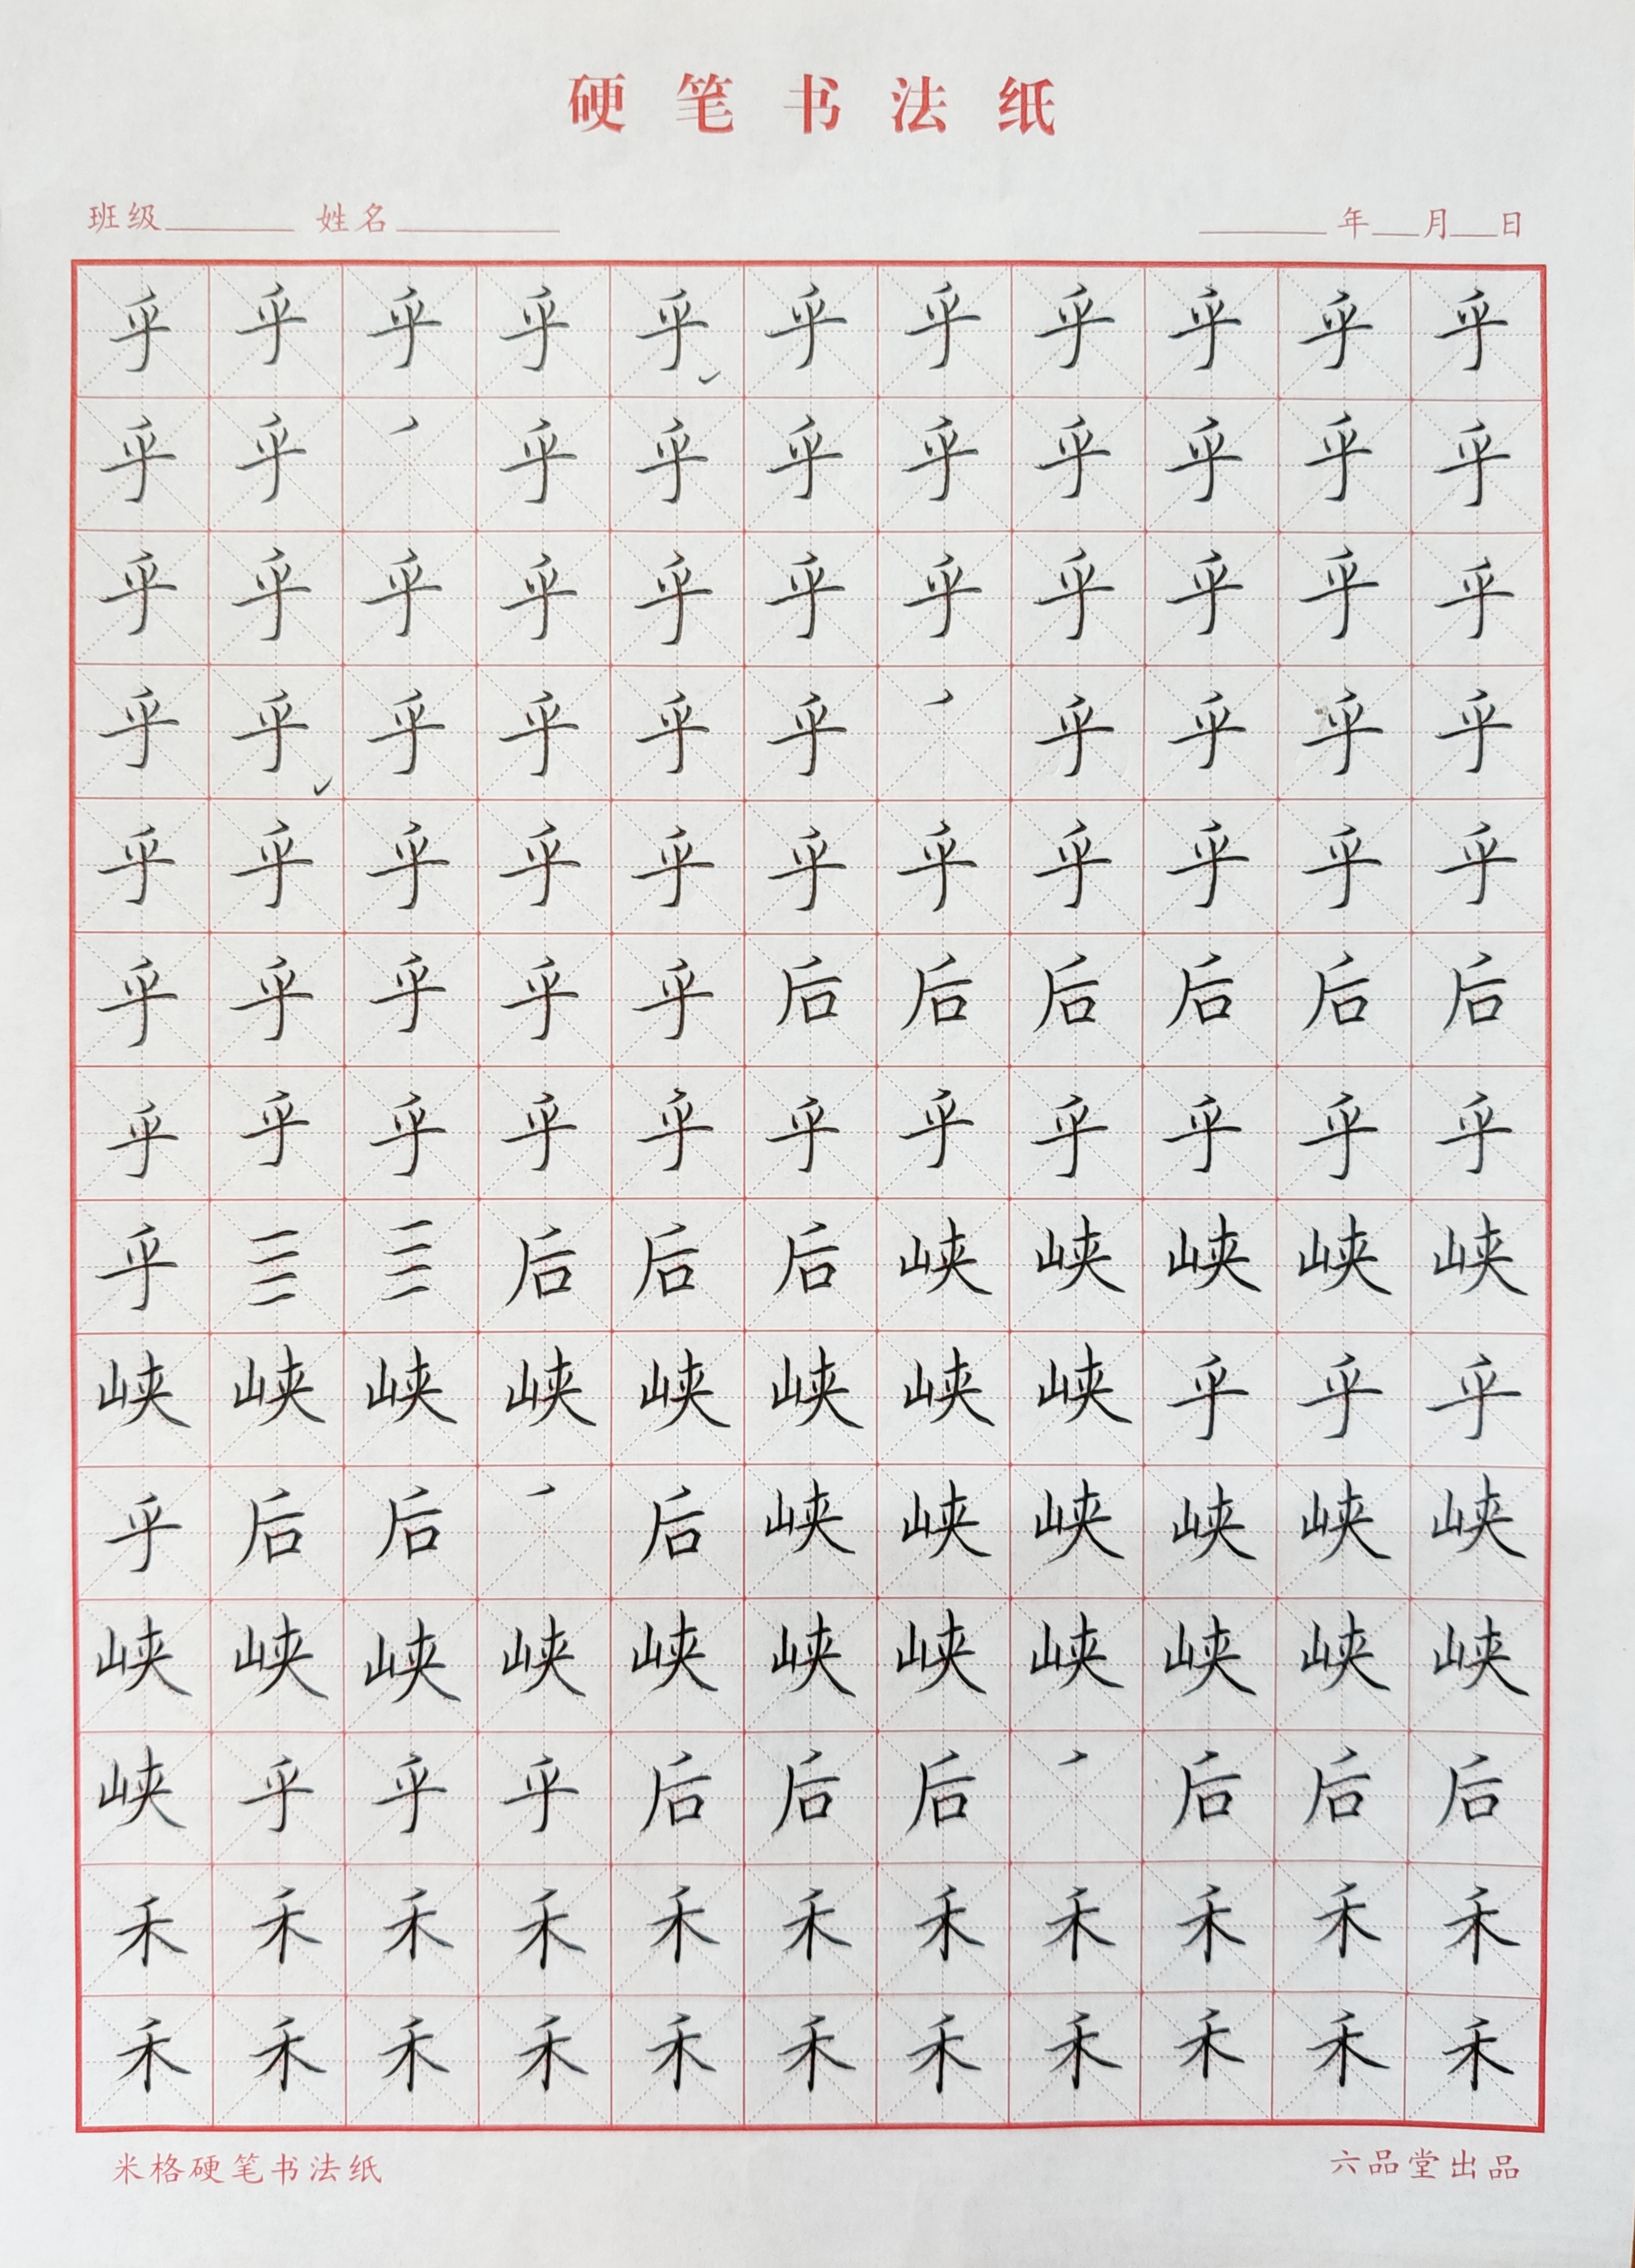 硬笔书法纸
班级 姓名 年 月 日
乎乎乎乎乎乎乎乎乎乎乎
乎乎㇒乎乎乎乎乎乎乎乎
乎乎乎乎乎乎乎乎乎乎乎
乎乎乎乎乎乎㇒乎乎乎乎
乎乎乎乎乎乎乎乎乎乎乎
乎乎乎乎乎后后后后后后
乎乎乎乎乎乎乎乎乎乎乎
乎后后后峡峡峡峡峡
峡峡峡峡峡峡峡峡乎乎乎
乎后后㇒后峡峡峡峡峡峡
峡峡峡峡峡峡峡峡峡峡峡
峡乎乎乎后后后㇒后后后
禾禾禾禾禾禾禾禾禾禾禾
禾禾禾禾禾禾禾禾禾禾禾
米格硬笔书法纸 六品堂出品